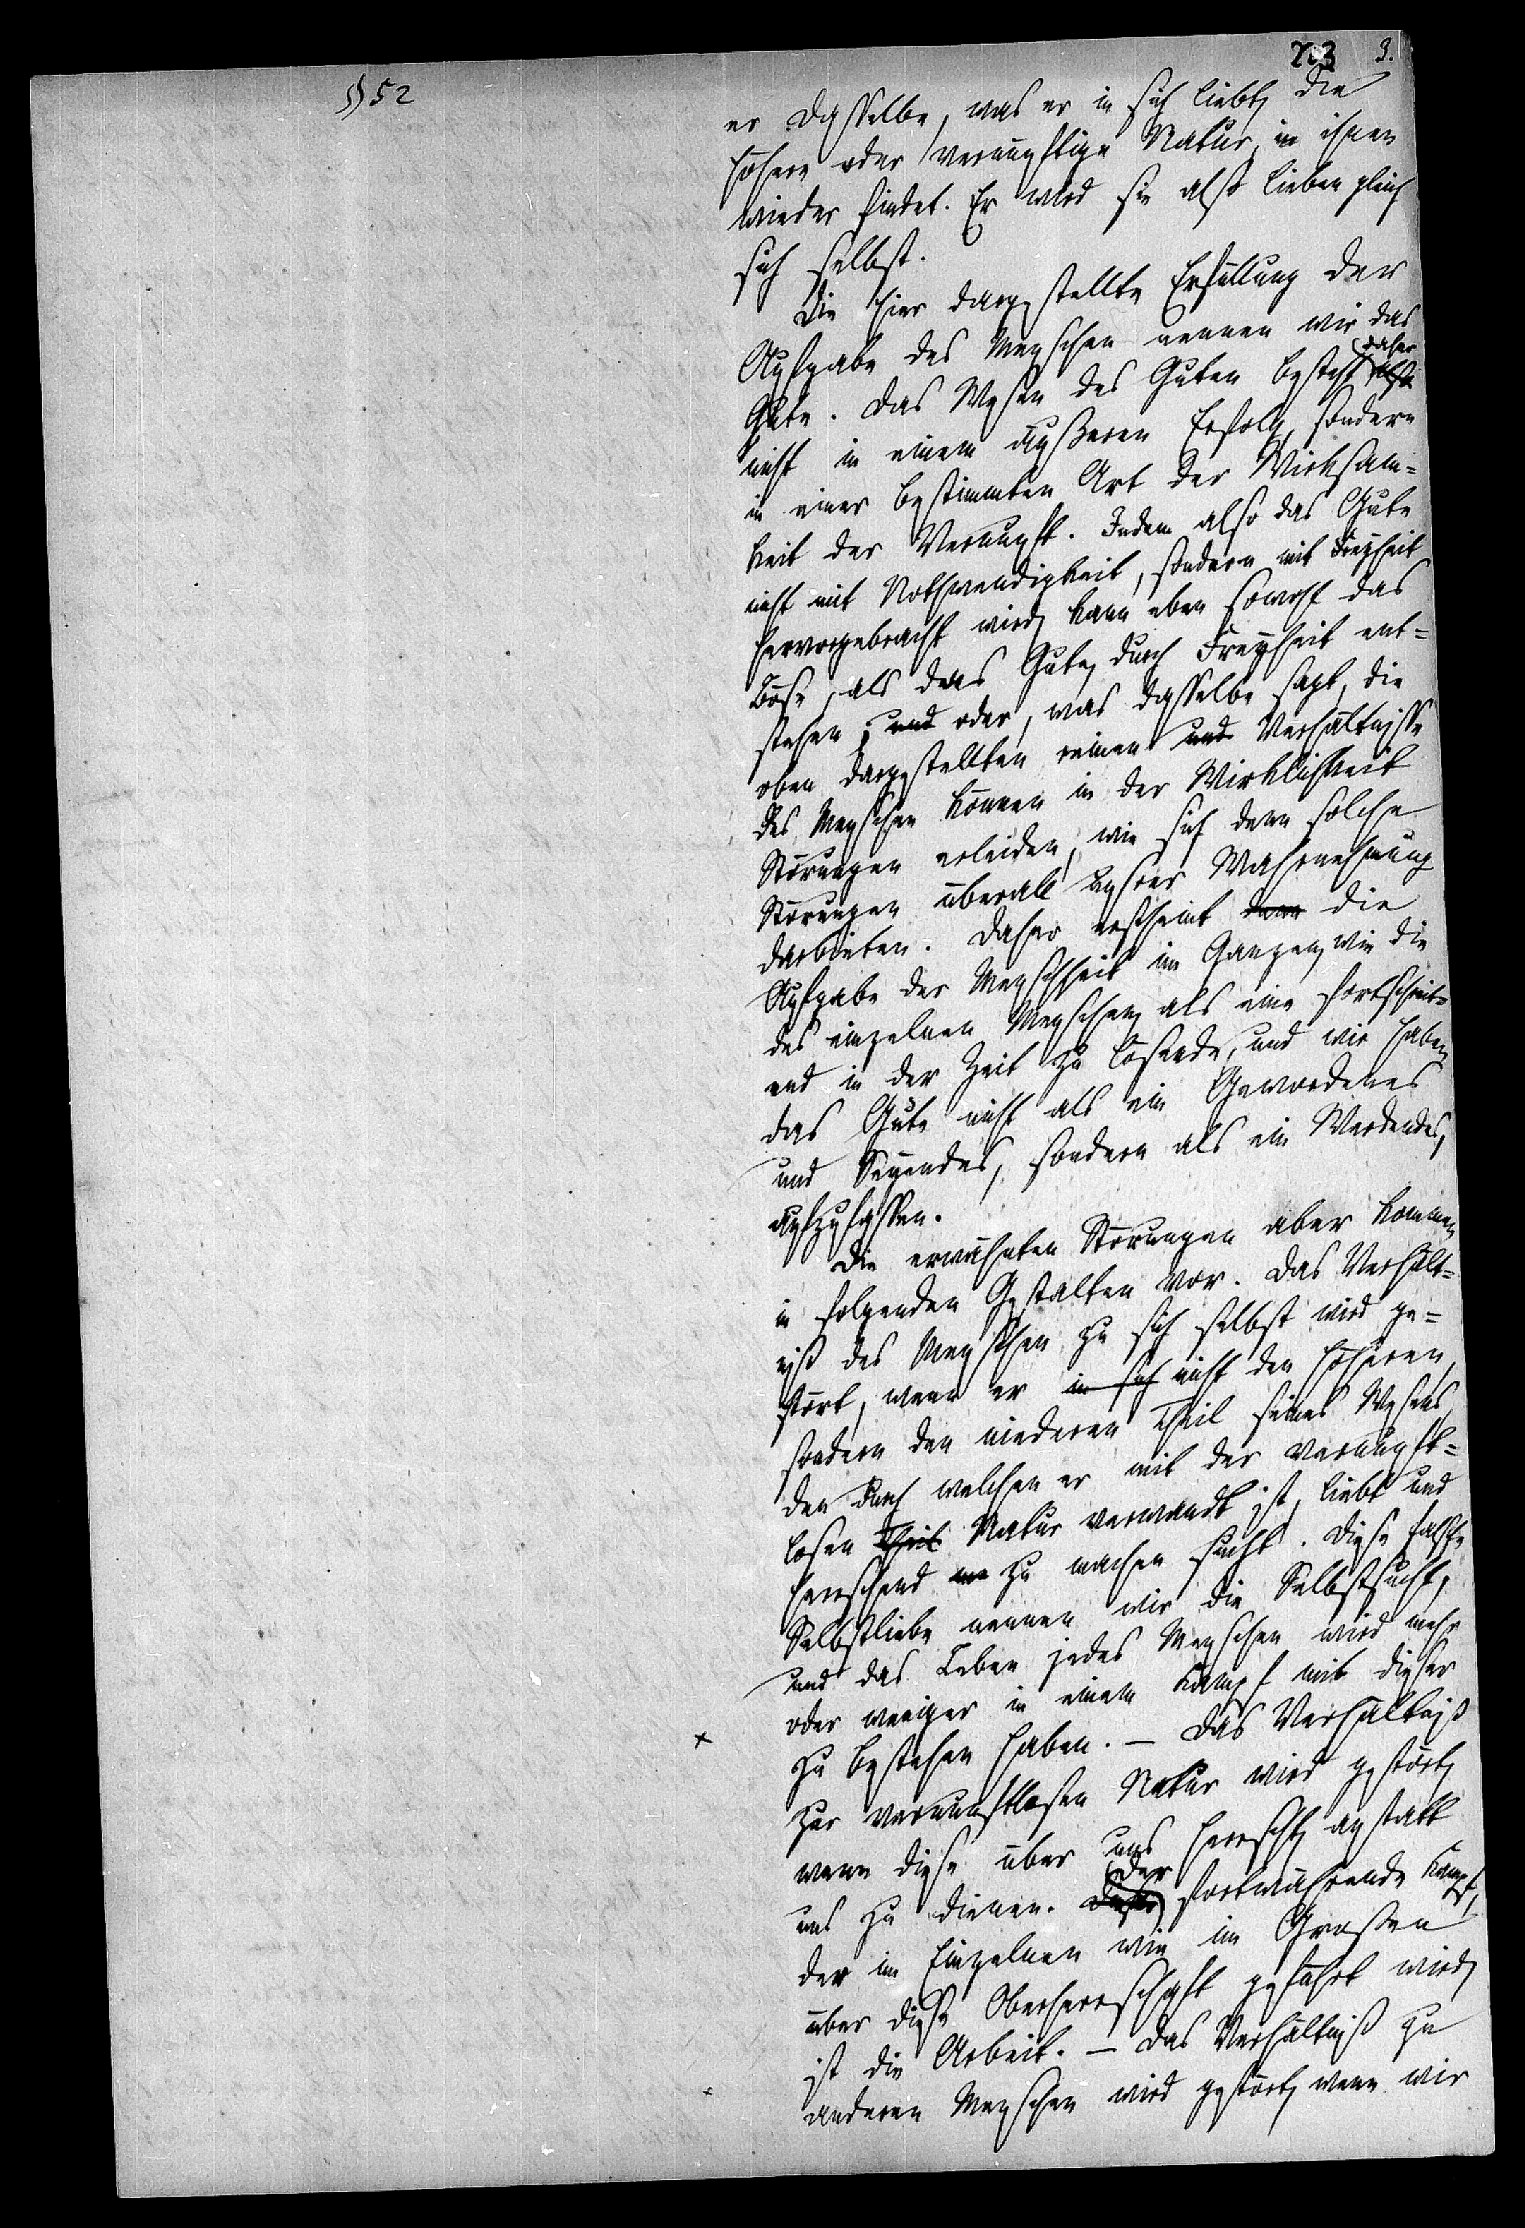 §§ 52
203 3.
er dasselbe, was er in sich liebt, die
höhere oder vernünftige Natur, in ihnen
wieder findet. Er wird sie also lieben gleich
sich selbst.
Die hier dargestellte Erfüllung der
Aufgabe des Menschen nennen wir das
Gute. Das Wesen des Guten besteht daher
nicht in einem äußeren Erfolg, sondern
in einer bestimmten Art der Wirksam=
keit der Vernunft. Indem also das Gute
nicht mit Nothwendigkeit, sondern mit Freyheit
hervorgebracht wird, kann eben sowohl das
Böse, als das Gute, durch Freyheit ent=
stehen; und oder, was dasselbe sagt, die
oben dargestellten reinen und Verhältnisse
des Menschen können in der Wirklichkeit
Störungen erleiden, wie sich denn solche
Störungen überall unsrer Wahrnehmung
darbieten. Daher erscheint denn die
Aufgabe der Menschheit im Ganzen, wie die
des einzelnen Menschen, als eine fortschreit=
end in der Zeit zu lösende, und wir haben
das Gute nicht als ein Gewordenes
und Seyendes, sondern als ein Werdendes,
aufzufassen.
Die erwähnten Störungen aber kommen
in folgenden Gestalten vor. Das Verhält=
niß des Menschen zu sich selbst wird ge=
stört, wenn er in sich nicht den höheren,
sondern den niederen Theil seines Wesens,
den durch welchen er mit der vernunft=
losen Theil Natur verwandt ist, liebt und
herrschend zu machen sucht. Diese falsche
Selbstliebe nennen wir die Selbstsucht,
und das Leben jedes Menschen wird mehr
oder weniger in einem Kampf mit dieser
zu bestehen haben. – Das Verhältniß
zur vernunftlosen Natur wird gestört,
wenn diese über uns herrscht, anstatt
uns zu dienen. Der fortwährende Kampf,
der im Einzelnen wie im Großen
über diese Oberherrschaft geführt wird,
ist die Arbeit. – Das Verhältniß zu
anderen Menschen wird gestört, wenn wir